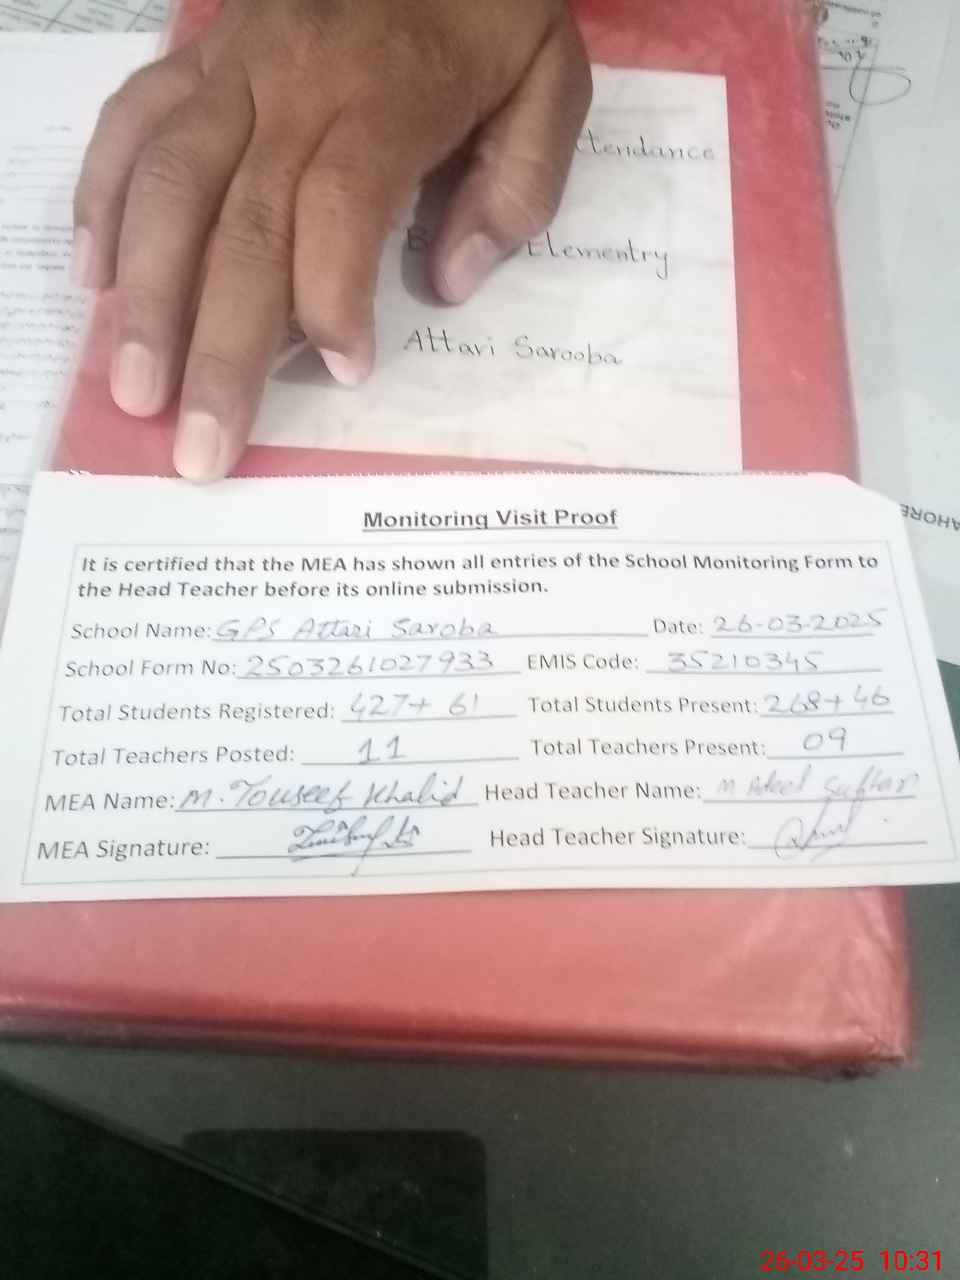 ttendance
Elementry
Attari Sarooba
AHORE
Monitoring Visit Proof
It is certified that the MEA has shown all entries of the School Monitoring Form to
the Head Teacher before its online submission.
School Name: GPS Attari Saroba Date: 26-03-2025
School Form No: 2503261027933 EMIS Code: 35210345
Total Students Registered: 427+ 61 Total Students Present: 268+46
Total Teachers Posted: 11 Total Teachers Present: 09
MEA Name: M. Touseef Khalid Head Teacher Name: M Adeel
MEA Signature: Head Teacher Signature:
26-03-25 10:31